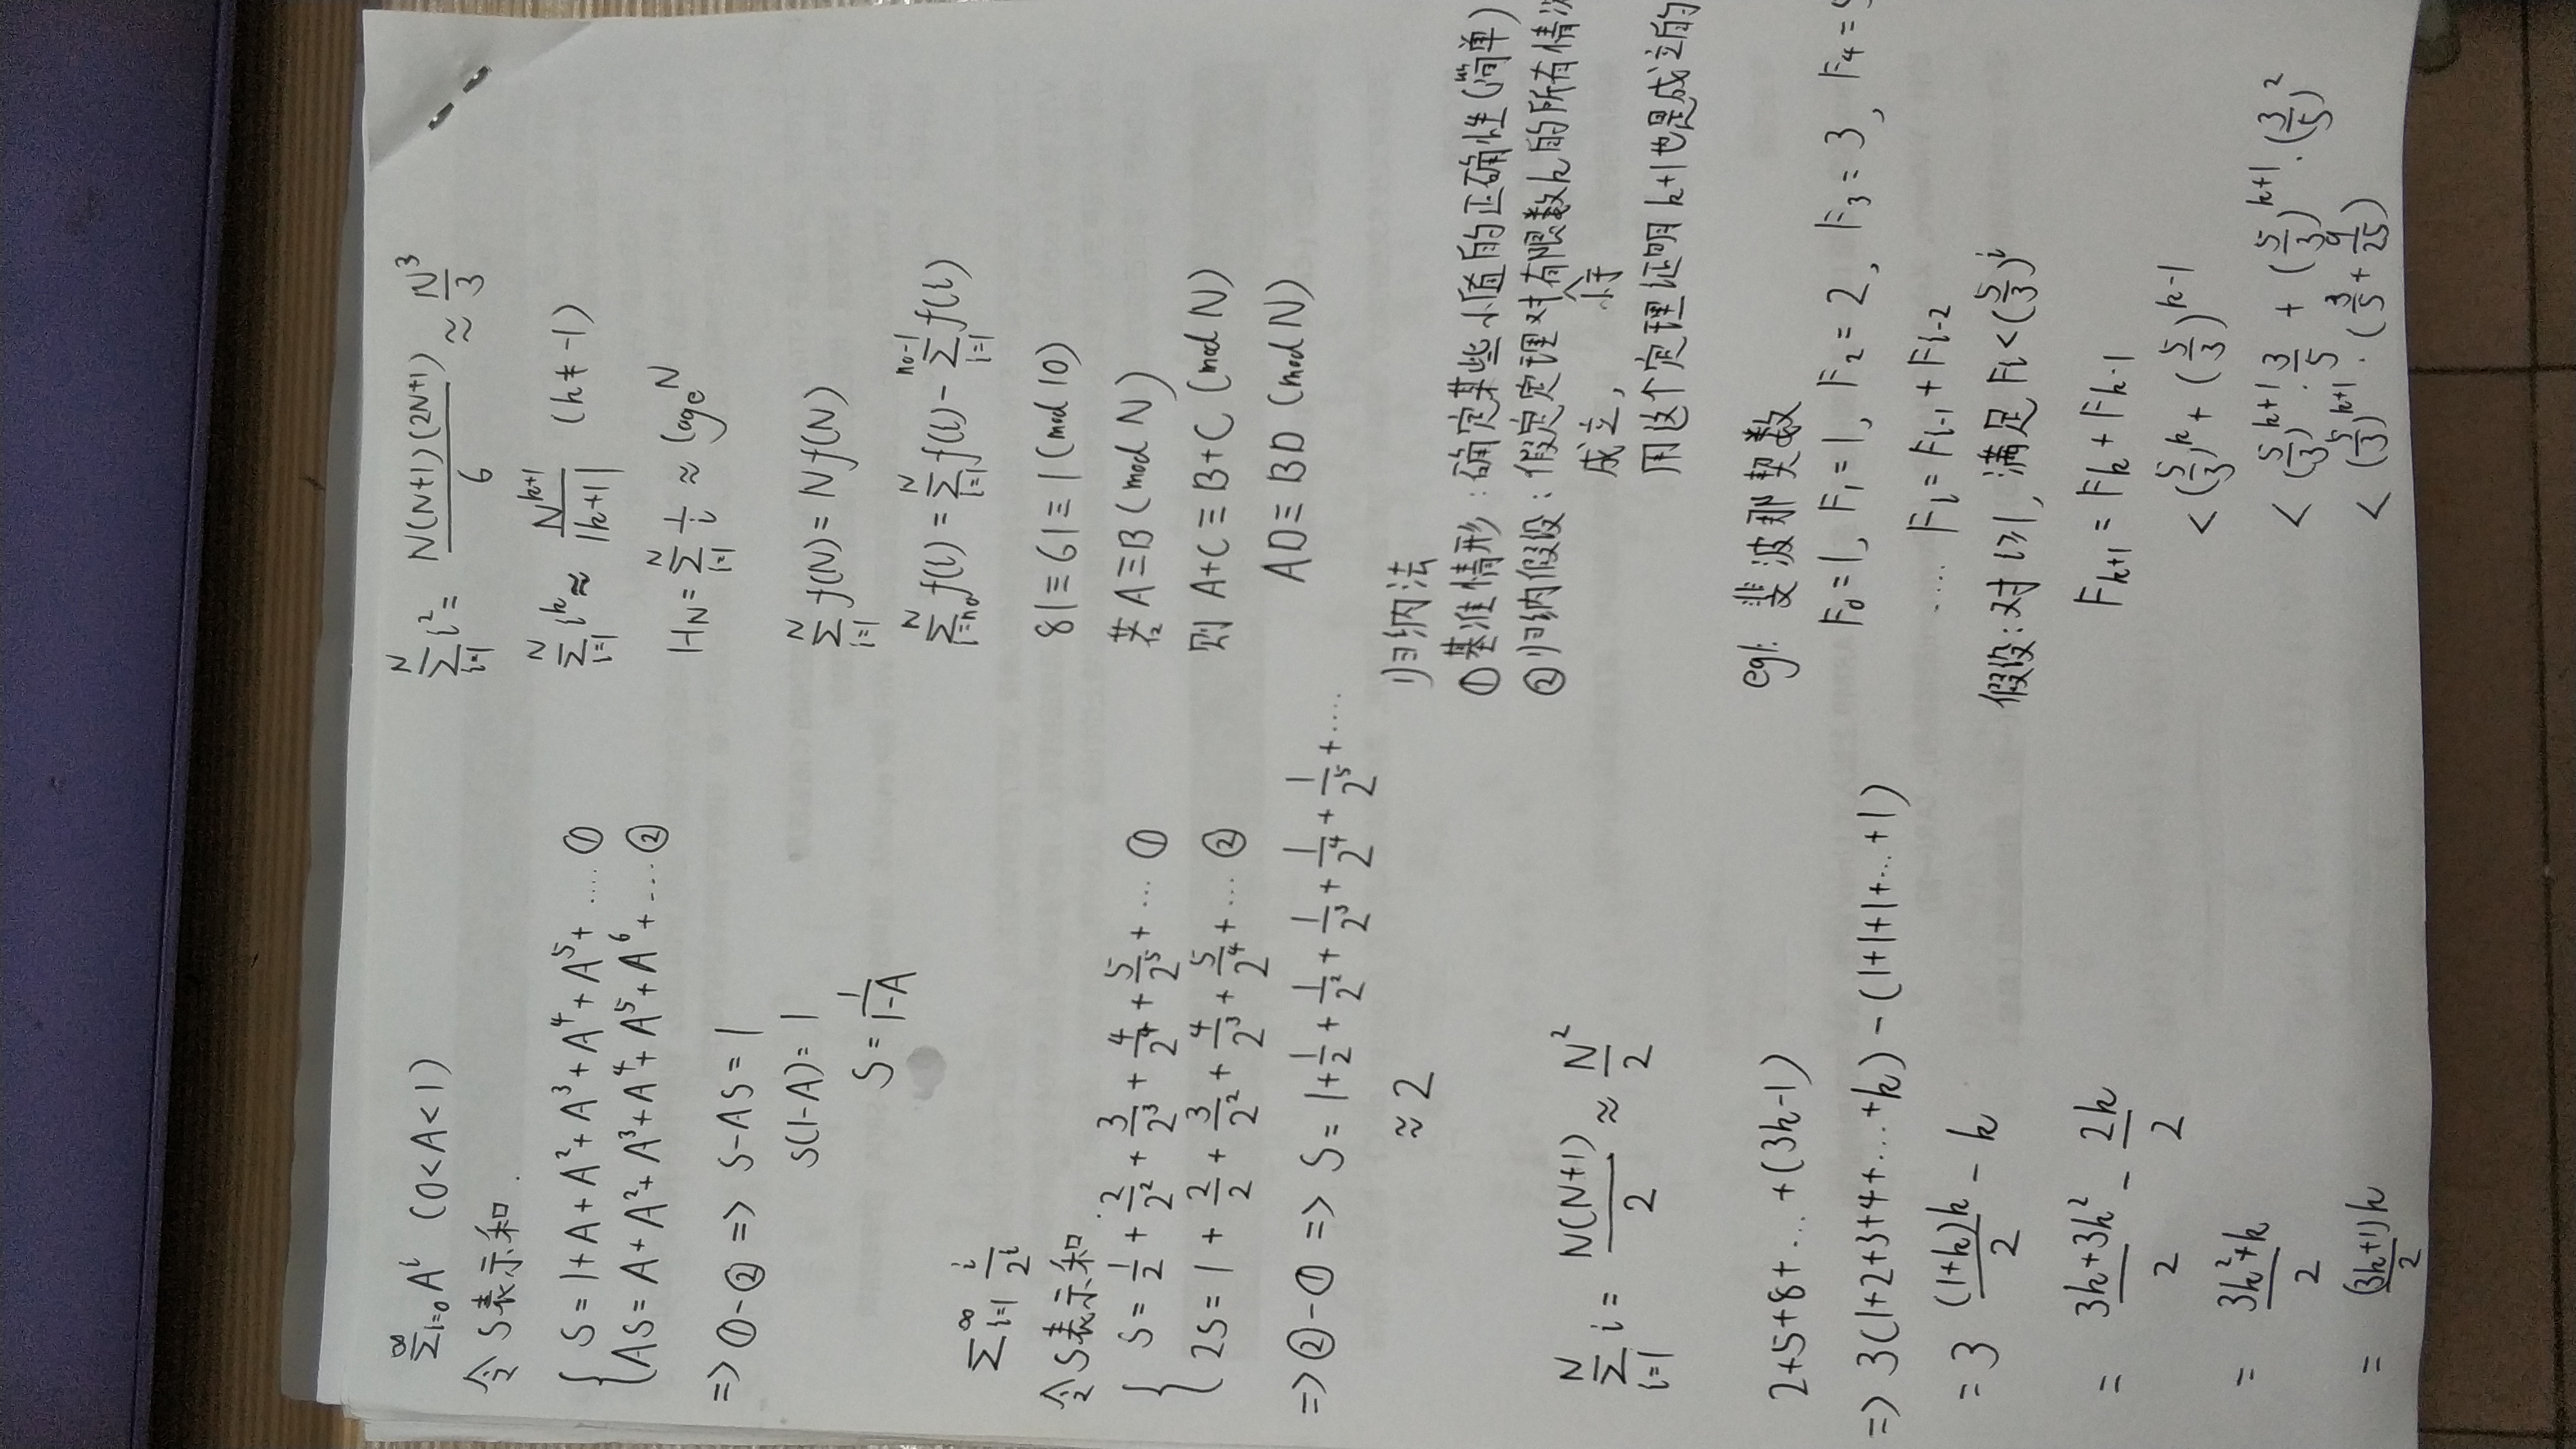 ∑_{i=0}^{∞} A^i (0<A<1)
令S表示和.
S = 1+A+A²+A³+A⁴+A⁵+ .... ①
AS = A+A²+A³+A⁴+A⁵+A⁶+ .... ②
=> ①-② => S-AS = 1
S(1-A) = 1
S = 1/(1-A)
∑_{i=1}^{∞} i/2^i
令S表示和.
S = 1/2 + 2/2² + 3/2³ + 4/2⁴ + 5/2⁵ + ... ①
2S = 1 + 2/2 + 3/2² + 4/2³ + 5/2⁴ + ... ②
=> ②-① => S = 1+1/2+1/2²+1/2³+1/2⁴+1/2⁵+....
≈ 2
∑_{i=1}^{N} i = N(N+1)/2 ≈ N²/2
2+5+8+...+(3k-1)
=> 3(1+2+3+4+...+k)-(1+1+1+...+1)
= 3 (1+k)k/2 - k
= (3k+3k²)/2 - 2k/2
= (3k²+k)/2
= (3k+1)k/2
∑_{i=1}^{N} i² = N(N+1)(2N+1)/6 ≈ N³/3
∑_{i=1}^{N} i^k ≈ N^{k+1}/|k+1| (k≠-1)
H_N = ∑_{i=1}^{N} 1/i ≈ log_e N
∑_{i=1}^{N} f(N) = Nf(N)
∑_{i=n₀}^{N} f(i) = ∑_{i=1}^{N} f(i) - ∑_{i=1}^{n₀-1} f(i)
81≡61≡1 (mod 10)
若 A≡B (mod N)
则 A+C≡B+C (mod N)
AD≡BD (mod N)
归纳法
①基准情形:确定某些小值的正确性(简单)
②归纳假设:假定定理对有限数k的所有情况
成立,
用这个定理证明k+1也是成立的
eg1: 斐波那契数
F₀=1, F₁=1, F₂=2, F₃=3, F₄=5
.... F_i = F_{i-1} + F_{i-2}
假设:对i≥1, 满足 F_i<(5/3)^i
F_{k+1} = F_k + F_{k-1}
< (5/3)^k + (5/3)^{k-1}
< (5/3)^{k+1}·3/5 + (5/3)^{k+1}·(3/5)²
< (5/3)^{k+1}·(3/5+9/25)